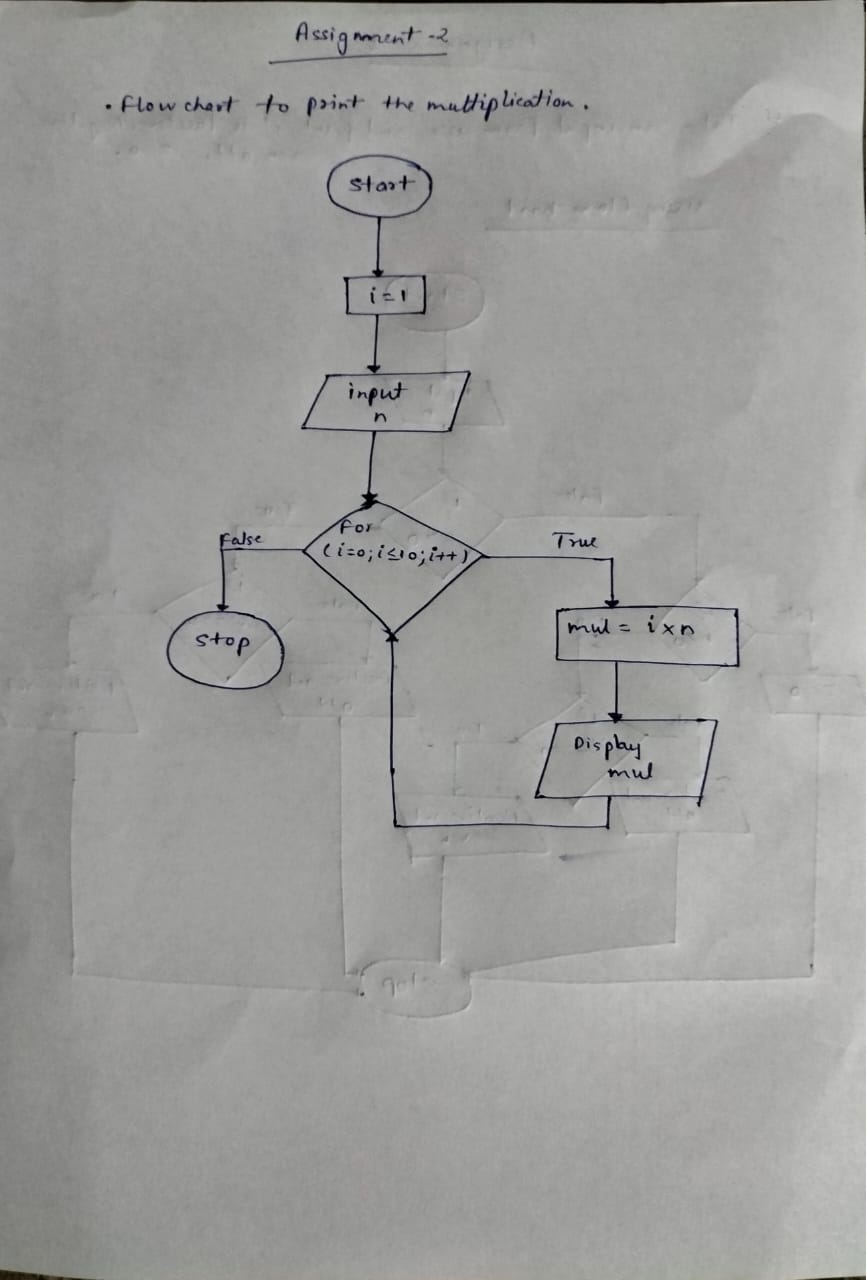 Assignment -2
• Flow chart to print the multiplication.
Start
i = 1
input
n
For
(i=0; i≤10; i++)
False
True
Stop
mul = i × n
Display
mul